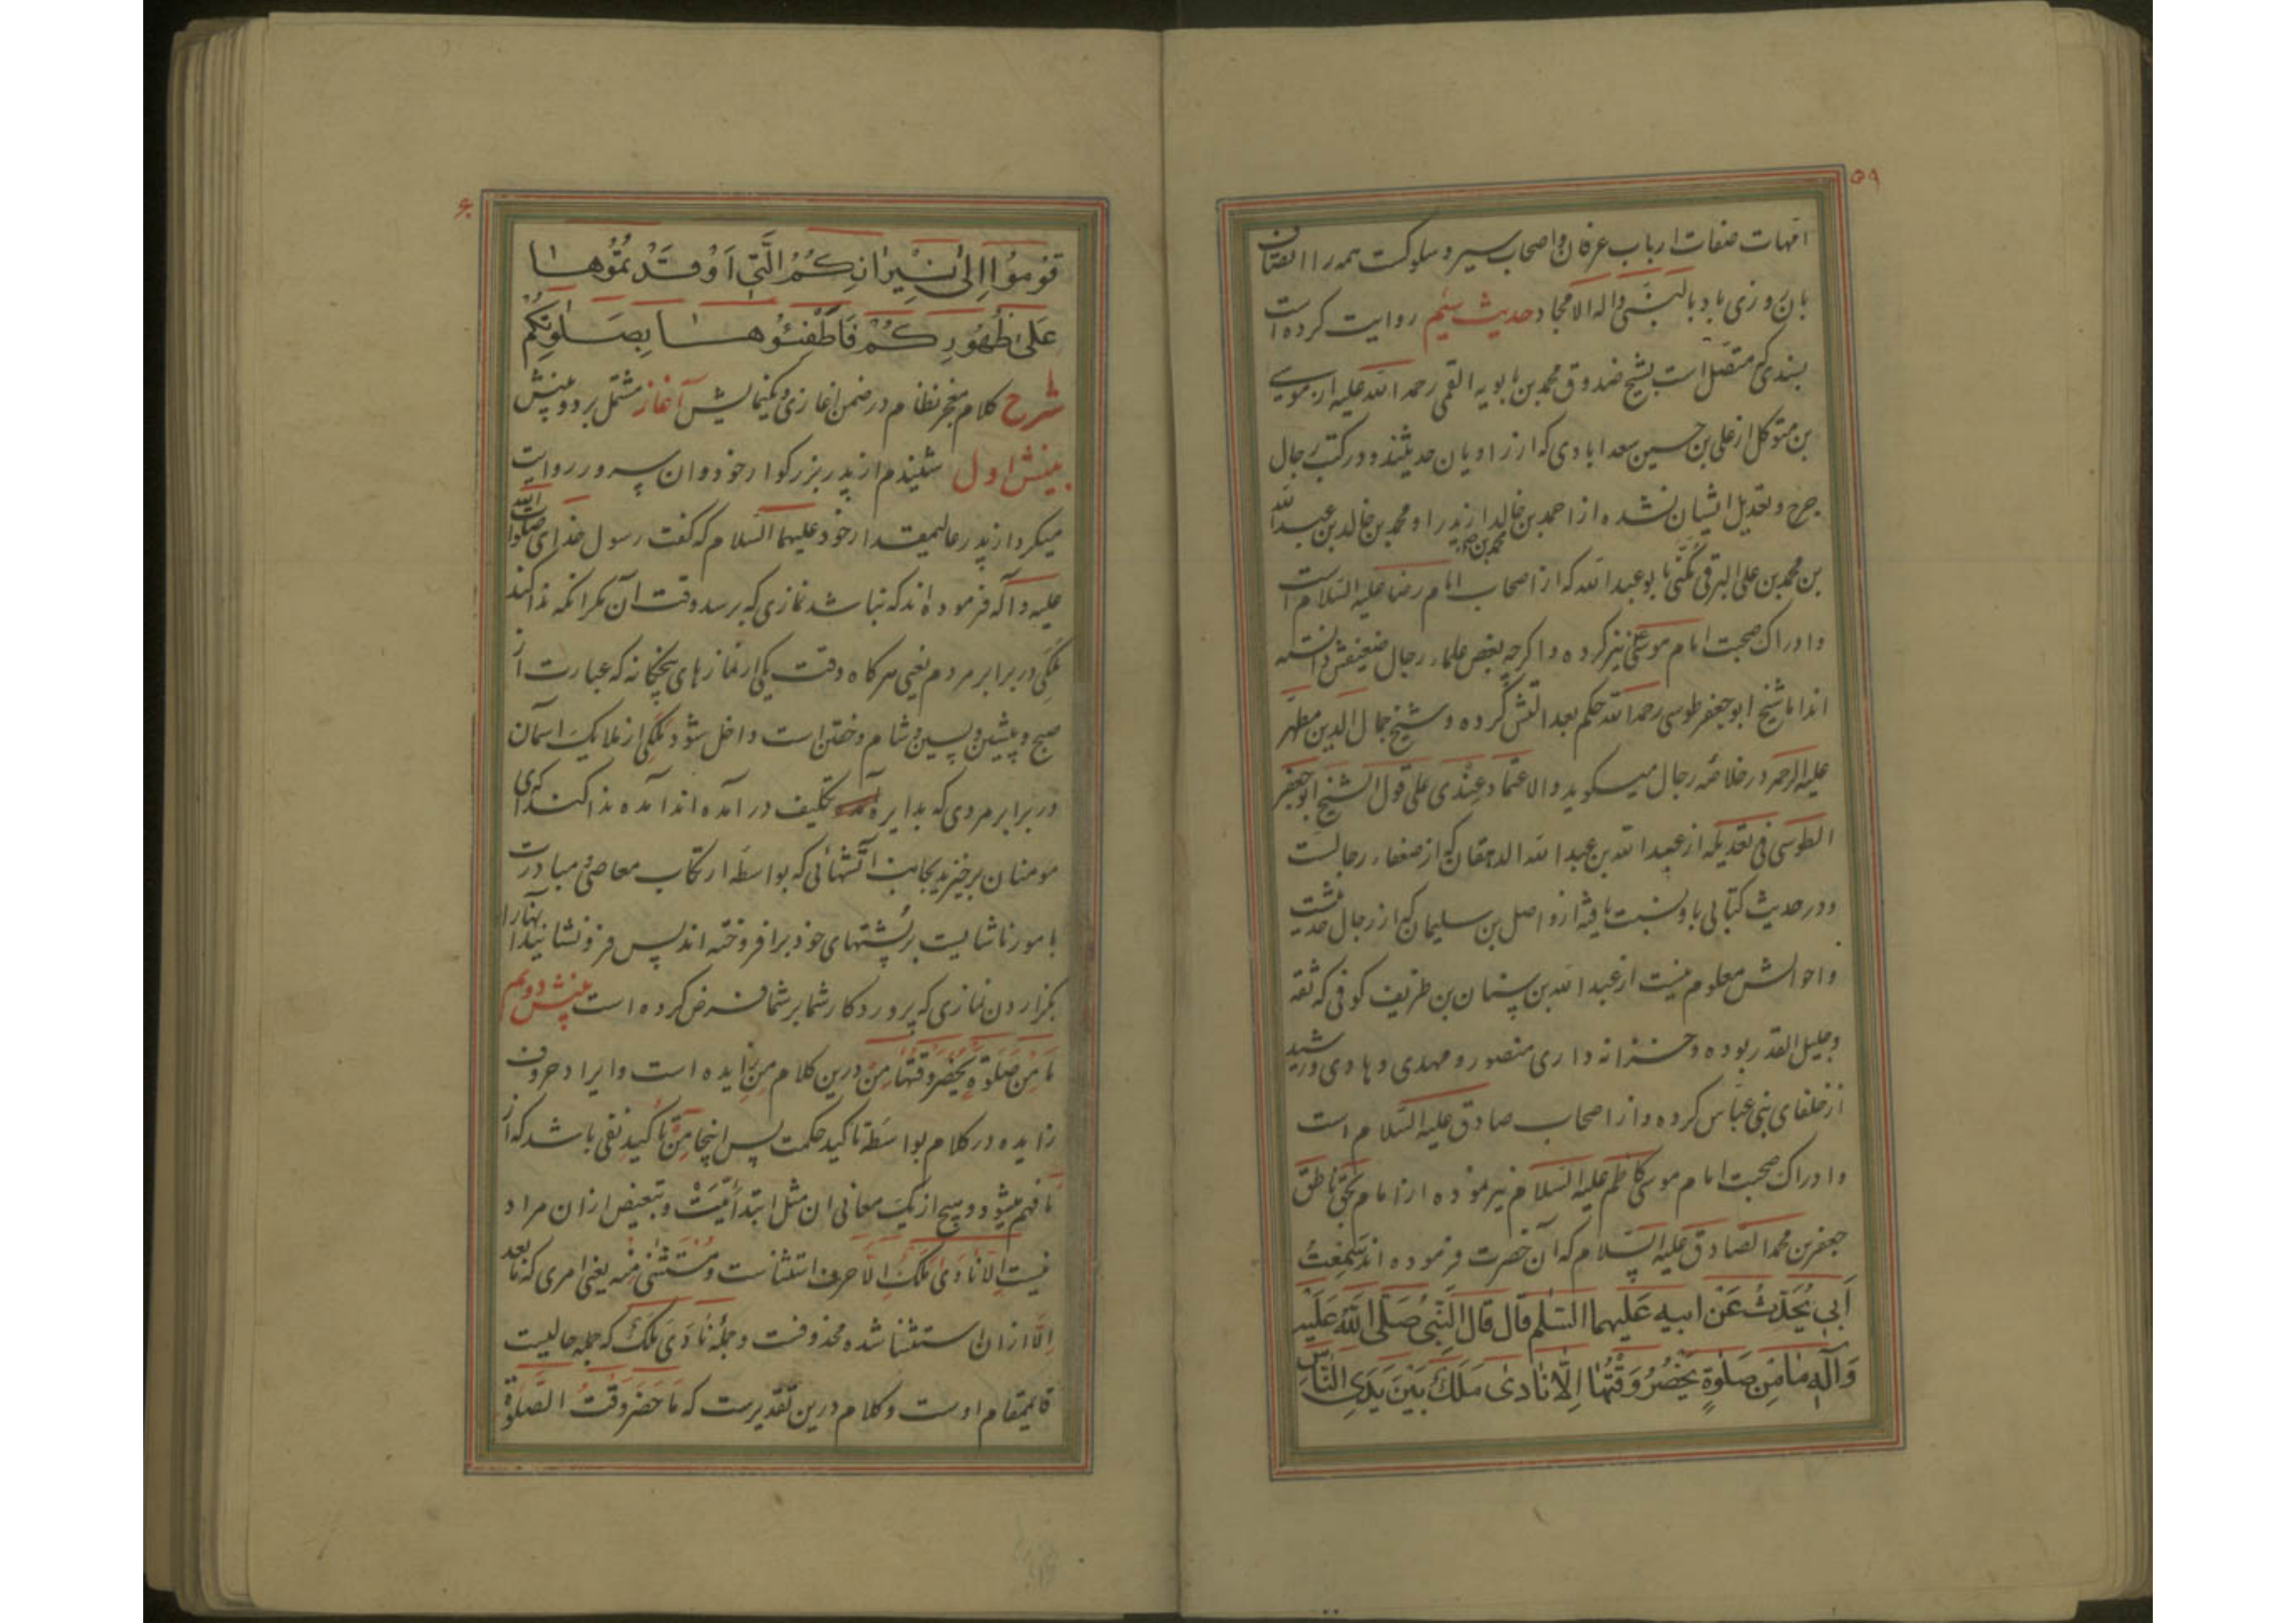 ۵۹
امهات صفات ارباب عرفان و اصحاب سیر و سلوکست همه را اتصاف
بان روزی باد بالنبی واله الامجاد حدیث سیم روایت کرده است
بسندی که متصل است بشیخ صدوق محمد بن بابویه القمی رحمه الله علیه از موسی
بن متوکل از علی بن حسین سعدابادی که از راویان حدیثند و در کتب رجال
جرح و تعدیل ایشان نشده از احمد بن خالد از پدر او محمد بن خالد بن عبدالله
بن محمد بن علی البرقی مکنی بابو عبدالله که از اصحاب امام رضا علیه السلام است
و ادراک صحبت امام موسی نیز کرده و اگرچه بعض علماء رجال ضعیفش دانسته
اند اما شیخ ابو جعفر طوسی رحمه الله حکم بعدالتش کرده و شیخ جمال الدین مطهر
علیه الرحمه در خلاصه رجال میگوید والاعتماد عندی علی قول الشیخ ابو جعفر
الطوسی فی تعدیله از عبید الله بن عبد الله الدهقان که از ضعفاء رجالست
و در حدیث کتابی باو نسبت یافته از واصل بن سلیمان که از رجال حدیث
و احوالش معلوم نیست از عبدالله بن سنان بن طریف کوفی که ثقه
و جلیل القدر بوده و خزانه داری منصور و مهدی و هادی و رشید
از خلفای بنی عباس کرده و از اصحاب صادق علیه السلام است
و ادراک صحبت امام موسی کاظم علیه السلام نیز نموده از امام بحق ناطق
جعفر بن محمد الصادق علیه السلام که آن حضرت فرموده اند سمعت
أبی یحدث عن ابیه علیهما السلم قال قال النبی صلی الله علیه
وآله ما من صلوة یحضر وقتها الا نادی ملک بین یدی الناس
۶۰
قوموا الی نیرانکم التی اوقدتموها
علی ظهورکم فاطفئوها بصلوتکم
شرح کلام معجز نظام در ضمن آغازی و نمایش آغاز مشتمل بر دو بینش
بینش اول شنیدم از پدر بزرگوار خود و ان سرور روایت
میکرد از پدر عالیمقدار خود علیهما السلام که گفت رسول خدای صلوات الله
علیه وآله فرموده اند که نباشد نمازی که برسد وقت آن مکر انکه ندا کند
ملکی در برابر مردم یعنی هرکاه وقت یکی از نمازهای پنجکانه که عبارت از
صبح و پیشین و پسین و شام و خفتن است داخل شود ملکی از ملایک اسمان
در برابر مردمی که بدایره تکلیف درآمده اند آمده ندا کند که ای
مومنان برخیزید بجانب آتشهائی که بواسطه ارتکاب معاصی و مبادرت
بامور ناشایست بر پشتهای خود برافروخته اند پس فرونشانید انها را
بگزاردن نمازی که پروردکار شما بر شما فرض کرده است بینش دویم
ما من صلوة یحضر وقتها من درین کلام مزیده است و ایراد حروف
زایده در کلام بواسطه تاکید حکمت پس اینجا من تاکید نفی باشد که از
ما فهم میشود و هیچ از یک معانی ان مثل ابتدائیت و تبعیض ازان مراد
نیست الا نادی ملک الا حرف استثناست و مستثنی منه یعنی امری که مابعد
الا ازان استثنا شده محذوفست و جمله نادی ملک که جمله حالیست
قایمقام اوست و کلام درین تقدیرست که ما حضر وقت الصلوة